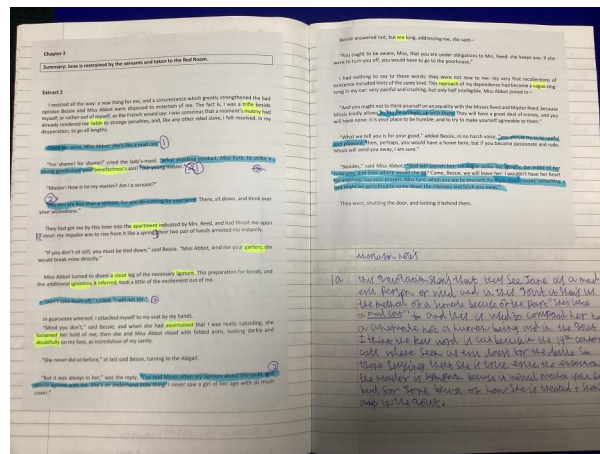 Chapter 2
Summary: Jane is restrained by the servants and taken to the Red Room.
Extract 2
I resisted all the way: a new thing for me, and a circumstance which greatly strengthened the bad
opinion Bessie and Miss Abbot were disposed to entertain of me. The fact is, I was a trifle beside
myself; or rather out of myself, as the French would say: I was conscious that a moment's mutiny had
already rendered me liable to strange penalties, and, like any other rebel slave, I felt resolved, in my
desperation, to go all lengths.
"Hold her arms, Miss Abbot: she's like a mad cat." 1
"For shame! for shame!" cried the lady's-maid. "What shocking conduct, Miss Eyre, to strike a
young gentleman, your benefactress's son! Your young master."
"Master! How is he my master? Am I a servant?"
2
"No; you are less than a servant, for you do nothing for your keep. There, sit down, and think over
your wickedness."
They had got me by this time into the apartment indicated by Mrs. Reed, and had thrust me upon
a stool: my impulse was to rise from it like a spring; their two pair of hands arrested me instantly.
"If you don't sit still, you must be tied down," said Bessie. "Miss Abbot, lend me your garters; she
would break mine directly."
Miss Abbot turned to divest a stout leg of the necessary ligature. This preparation for bonds, and
the additional ignominy it inferred, took a little of the excitement out of me.
"Don't take them off," I cried; "I will not stir."
In guarantee whereof, I attached myself to my seat by my hands.
"Mind you don't," said Bessie; and when she had ascertained that I was really subsiding, she
loosened her hold of me; then she and Miss Abbot stood with folded arms, looking darkly and
doubtfully on my face, as incredulous of my sanity.
"She never did so before," at last said Bessie, turning to the Abigail.
"But it was always in her," was the reply. "I've told Missis often my opinion about the child, and
Missis agreed with me. She's an underhand little thing: I never saw a girl of her age with so much
cover."
Bessie answered not; but ere long, addressing me, she said—
"You ought to be aware, Miss, that you are under obligations to Mrs. Reed: she keeps you: if she
were to turn you off, you would have to go to the poorhouse."
I had nothing to say to these words: they were not new to me: my very first recollections of
existence included hints of the same kind. This reproach of my dependence had become a vague sing-
song in my ear: very painful and crushing, but only half intelligible. Miss Abbot joined in—
"And you ought not to think yourself on an equality with the Misses Reed and Master Reed, because
Missis kindly allows you to be brought up with them. They will have a great deal of money, and you
will have none: it is your place to be humble, and to try to make yourself agreeable to them."
"What we tell you is for your good," added Bessie, in no harsh voice, "you should try to be useful
and pleasant, then, perhaps, you would have a home here; but if you become passionate and rude,
Missis will send you away, I am sure."
"Besides," said Miss Abbot, "God will punish her: He might strike her dead in the midst of her
tantrums, and then where would she go? Come, Bessie, we will leave her: I wouldn't have her heart
for anything. Say your prayers, Miss Eyre, when you are by yourself; for if you don't repent, something
bad might be permitted to come down the chimney and fetch you away."
They went, shutting the door, and locking it behind them.
1a this quotation shows that they see Jane as a mad
evil person or
the method of a simile because of the part "she's like
a mad cat" and this is used to compare her to
a animal not a human being and in the
the key word is cat because in the 19th century
cats where seen as evil
the reader is because it would make you feel
bad for Jane because of how she is treated